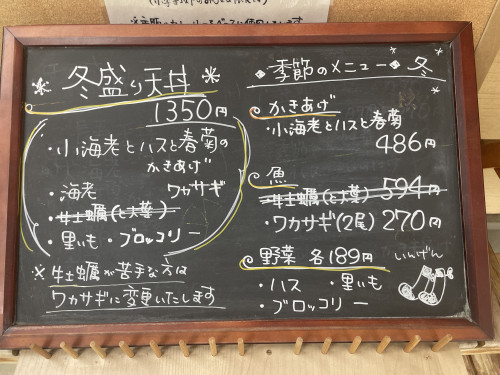 冬盛り天丼
1350円
・小海老とハスと春菊の
かきあげ
・海老 ワカサギ
・牡蠣(と大葉)
・里いも・ブロッコリー
※牡蠣が苦手な方は
ワカサギに変更いたします
季節のメニュー 冬
かきあげ
・小海老とハスと春菊
486円
魚
・牡蠣(と大葉) 594円
・ワカサギ(2尾) 270円
野菜 各189円
・ハス ・里いも
・ブロッコリー
いんげん